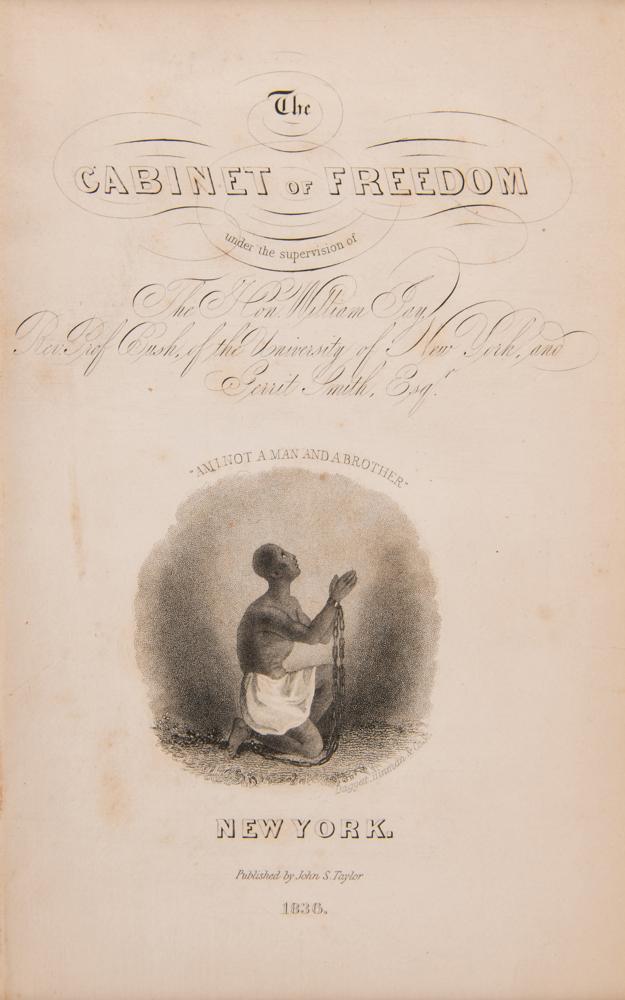 The
CABINET OF FREEDOM
under the supervision of
The Hon. William Jay,
Rev. Prof. Bush, of the University of New York, and
Gerrit Smith, Esqr.
"AM I NOT A MAN AND A BROTHER"
Daggett, Hinman & Co.
NEW YORK.
Published by John S. Taylor
1836.